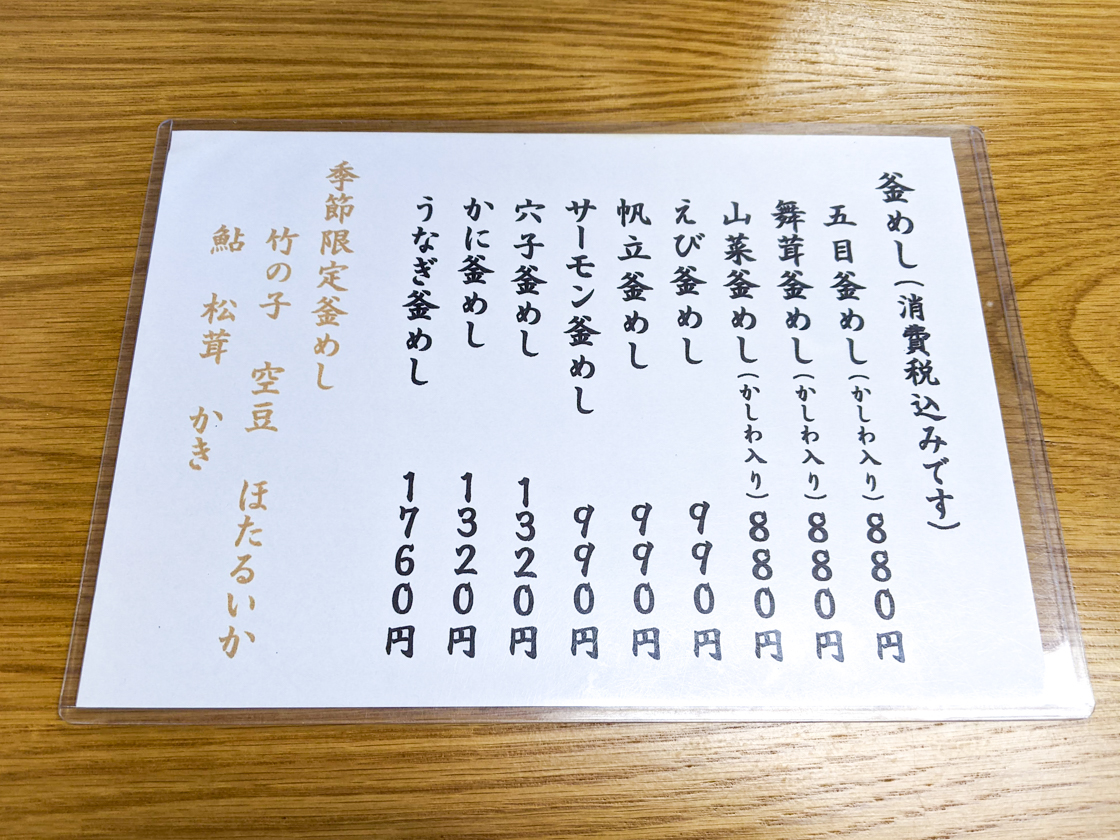 釜めし(消費税込みです)
五目釜めし(かしわ入り)880円
舞茸釜めし(かしわ入り)880円
山菜釜めし(かしわ入り)880円
えび釜めし 990円
帆立釜めし 990円
サーモン釜めし 990円
穴子釜めし 1320円
かに釜めし 1320円
うなぎ釜めし 1760円
季節限定釜めし
竹の子 空豆 ほたるいか
鮎 松茸 かき